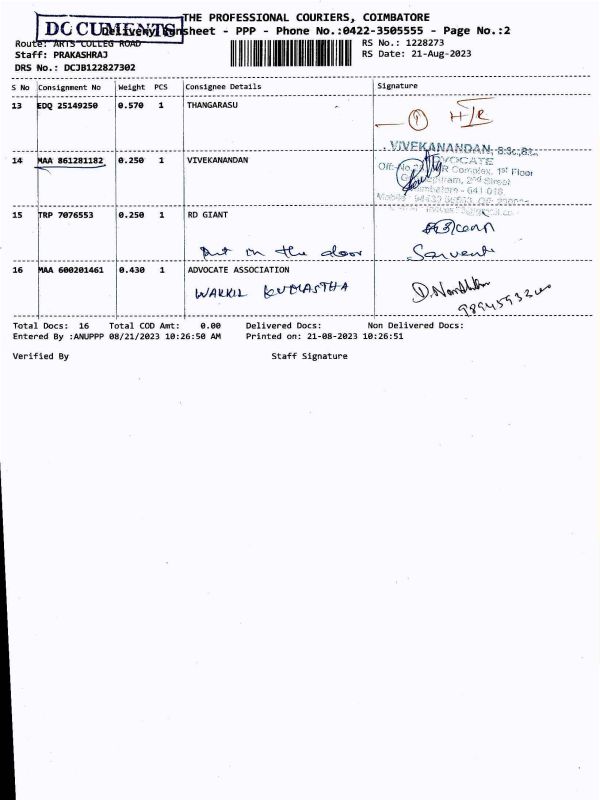 THE PROFESSIONAL COURIERS, COIMBATORE
DOCUMENTS
Delivery Runsheet - PPP - Phone No.:0422-3505555 - Page No.:2
Route: ARTS COLLEG ROAD
RS No.: 1228273
Staff: PRAKASHRAJ
RS Date: 21-Aug-2023
DRS No.: DCJB122827302
S No Consignment No Weight PCS Consignee Details Signature
13 EDQ 25149250 0.570 1 THANGARASU
1 H/R
VIVEKANANDAN, B.Sc.,B.L.
14 MAA 861281182 0.250 1 VIVEKANANDAN
ADVOCATE
Complex, 1st Floor
2nd Street
Coimbatore - 641 018
15 TRP 7076553 0.250 1 RD GIANT
Put in the door
16 MAA 600201461 0.430 1 ADVOCATE ASSOCIATION
WAKKIL KUMASTHA
Total Docs: 16 Total COD Amt: 0.00 Delivered Docs: Non Delivered Docs:
Entered By :ANUPPP 08/21/2023 10:26:50 AM Printed on: 21-08-2023 10:26:51
Verified By Staff Signature